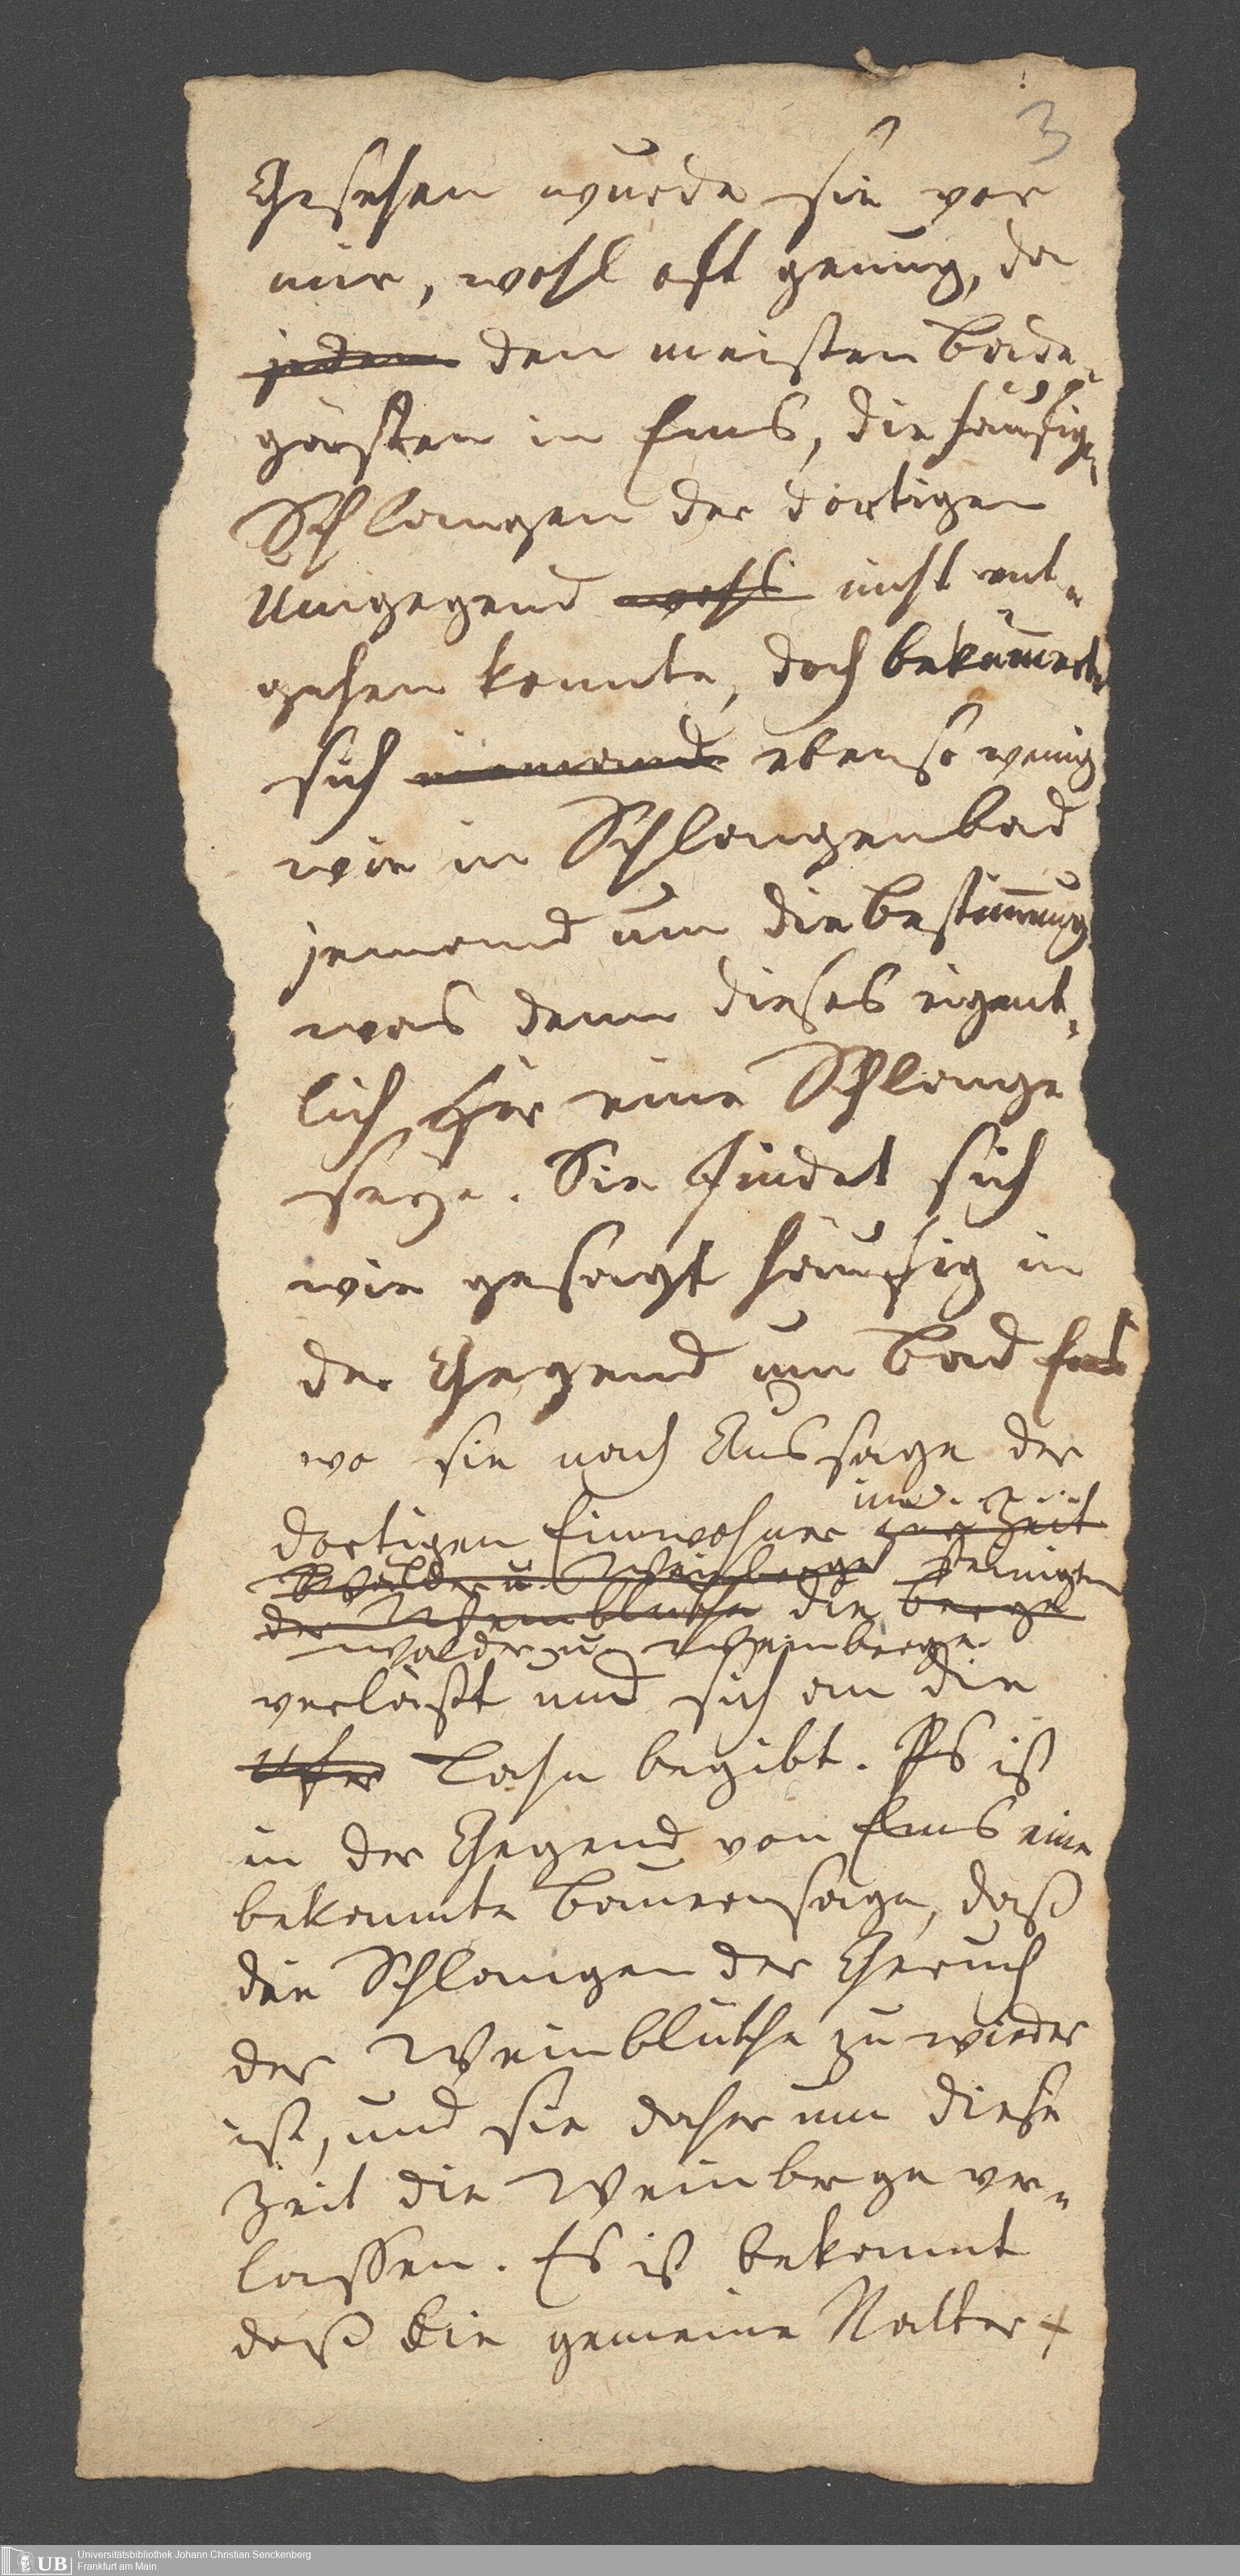 3
Gesehen wurde sie vor
mir, wohl oft genug, da
jedem den meisten Bade-
gästen in Ems, die häufigen
Schlangen der dortigen
Umgegend wohl nicht ent-
gehen konnte, doch bekümerte
sich niemand ebenso wenig
wie in Schlangenbad
jemand um die Bestimung
was denn dieses eigent-
lich für eine Schlange
seye. Sie findet sich
wie gesagt häufig in
der Gegend um Bad Ems
wo sie nach Aussage der
dortigen Einwohner zur Zeit
Wälder u. Weinberge
der Weinblüthe die Berge
Wälder u Weinberge
verläßt und sich an die
Ufer Lahn begibt. Es ist
in der Gegend von Ems eine
bekannte Bauernsage, daß
die Schlangen der Geruch
der Weinblüthe zu wieder
ist, und sie daher um diese
Zeit die Weinberge ver-
lassen. Es ist bekannt
daß die gemeine Natter +
UB
Universitätsbibliothek Johann Christian Senckenberg
Frankfurt am Main